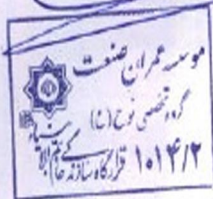 موسسه عمران صنعت
گروه تخصصی نوح (ع)
قرارگاه سازندگی خاتم الانبیاء
۱۰۱۴/۲